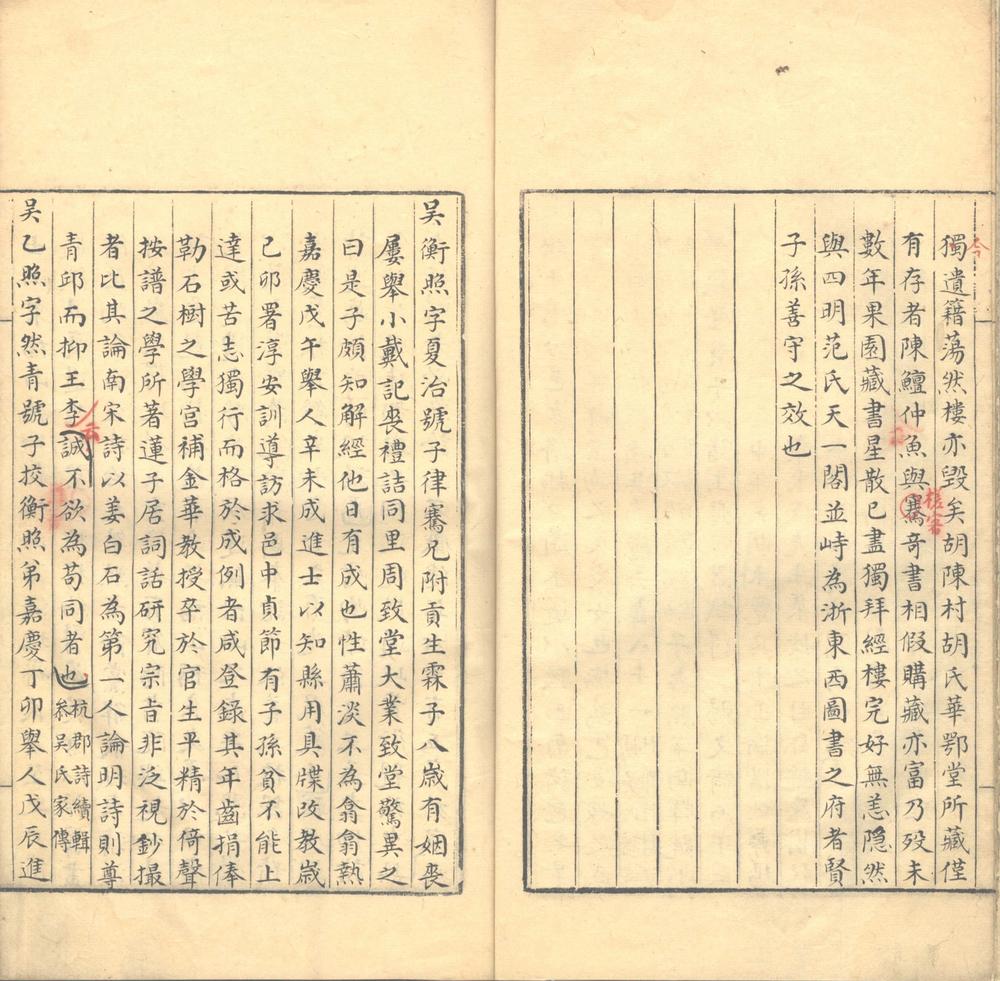 獨遺籍蕩然樓亦毀矣胡陳村胡氏華鄂堂所藏僅
有存者陳鱣仲魚與騫奇書相假購藏亦富乃歿未
數年果園藏書星散已盡獨拜經樓完好無恙隐然
與四明范氏天一閣並峙為浙東西圖書之府者賢
子孫善守之效也
吳衡照字夏治號子律騫兄附貢生霖子八歲有姻喪
屢舉小戴記喪禮詰同里周致堂大業致堂驚異之
曰是子頗知解經他日有成也性蕭淡不為翕翕熱
嘉慶戊午舉人辛未成進士以知縣用具牒改教嵗
己卯署淳安訓導訪求邑中貞節有子孫貧不能上
達或苦志獨行而格於成例者咸登錄其年齒捐俸
勒石樹之學宮補金華教授卒於官生平精於倚聲
按譜之學所著蓮子居詞話研究宗旨非泛視鈔撮
者比其論南宋詩以姜白石為第一人論明詩則尊
青邱而抑王李誠不欲為苟同者也杭郡詩續輯
叅吳氏家傳
吳乙照字然青號子挍衡照弟嘉慶丁卯舉人戊辰進